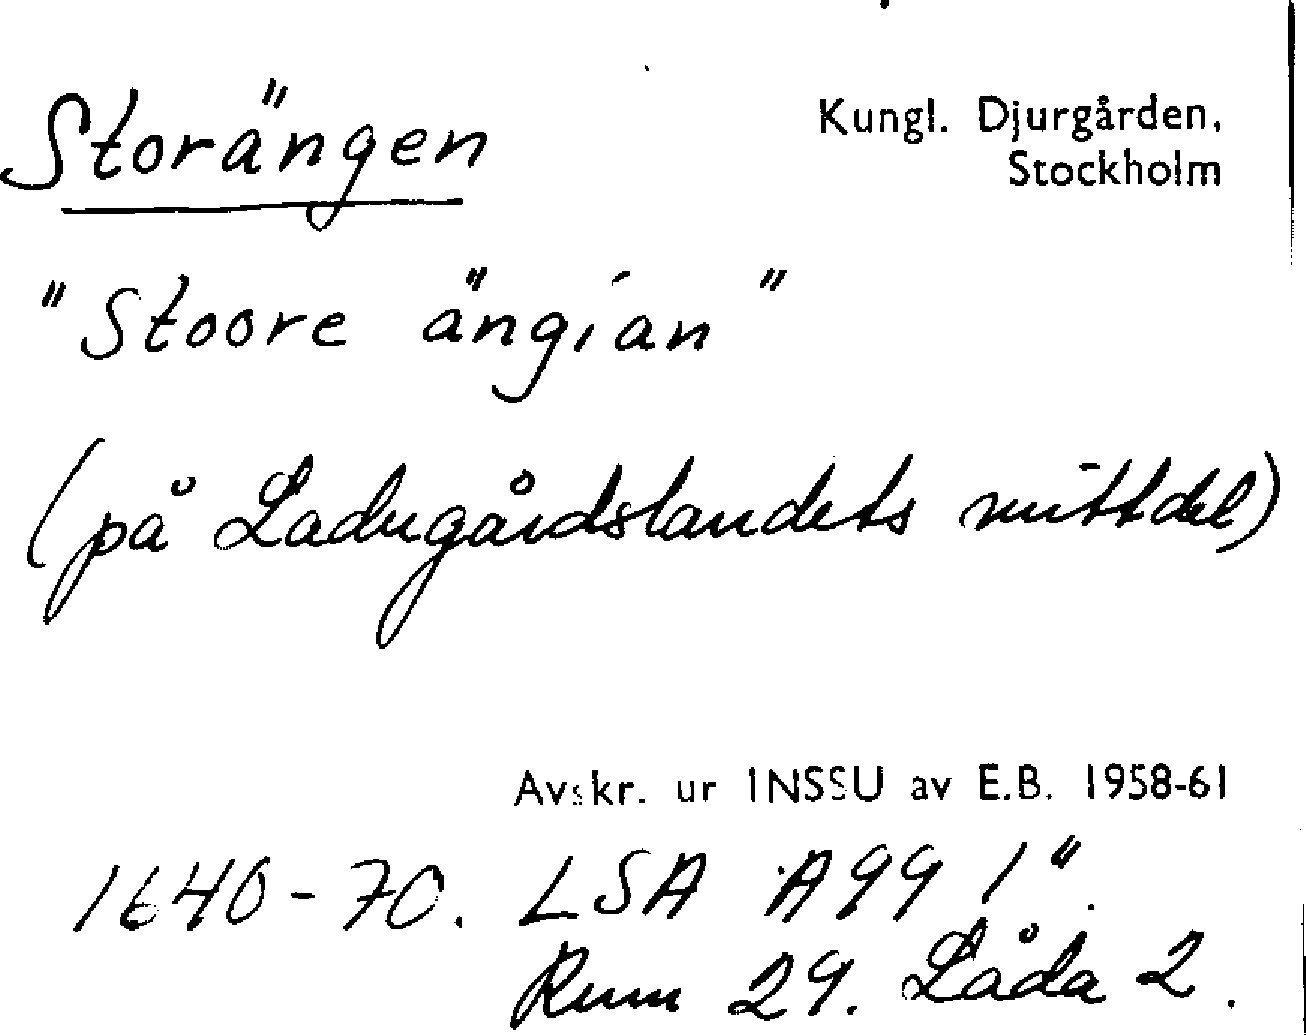 Storängen
Kungl. Djurgården,
Stockholm
"Stoore ängian"
(på Ladugårdslandets mittdel)
Avskr. ur INSSU av E.B. 1958-61
1640-70. LSA A99 1".
Rum 29. Låda 2.